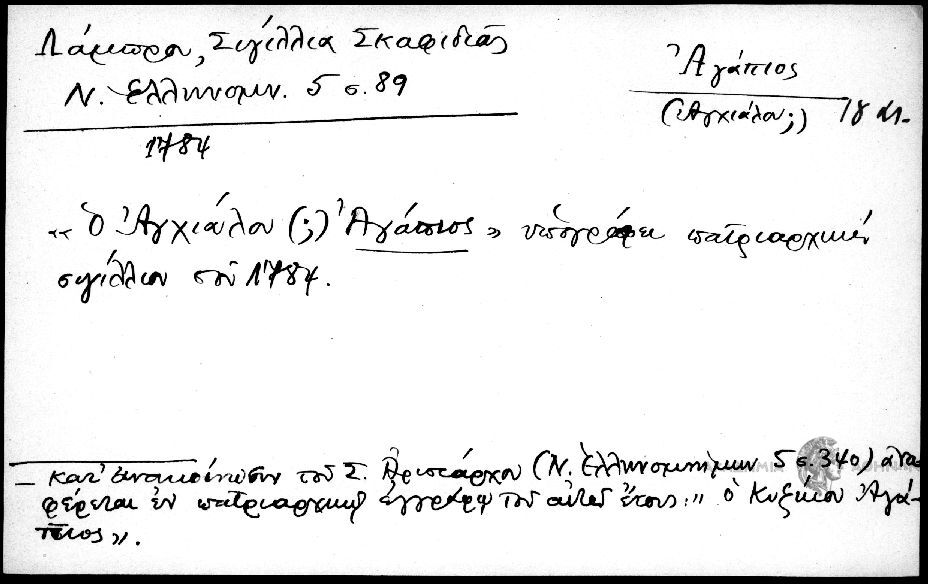 Λάμπρου, Σιγίλλια Σκαφιδιᾶς
Ν. Ἑλληνομν. 5 σ. 89
1784
Ἀγάπιος
(Ἀγχιάλου;)
« Ὁ Ἀγχιάλου (;) Ἀγάπιος » ὑπογράφει πατριαρχικὸν
σιγίλλιον τοῦ 1784.
— κατ' ἀνακοίνωσιν τοῦ Σ. Ἀριστάρχου (Ν. Ἑλληνομνήμων 5 σ. 340) ἀνα
φέρεται ἐν πατριαρχικῷ ἐγγράφῳ τοῦ αὐτοῦ ἔτους: » ὁ Κυζίκου Ἀγά-
πιος ».